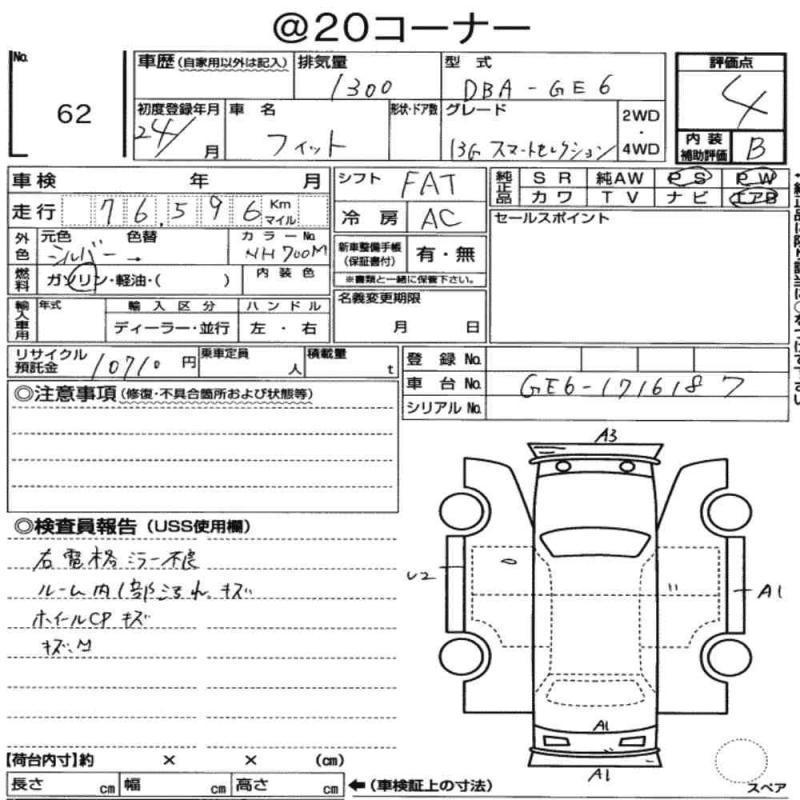 @20コーナー
No.
62
車歴 (自家用以外は記入)
排気量
1300
型式
DBA-GE6
評価点
4
初度登録年月
24/ 月
車名
フィット
形状・ドア数
グレード
13G スマートセレクション
2WD
・
4WD
内装
補助評価
B
車検 年 月
走行 76,596 Km
マイル
外色
元色 色替
シルバー →
カラーNo
NH700M
燃料
ガソリン・軽油・( )
内装色
輸入車用
年式
輸入区分
ディーラー・並行
ハンドル
左・右
シフト FAT
冷房 AC
新車整備手帳
(保証書付)
有・無
※書類と一緒に保管下さい。
名義変更期限
月 日
純正品
SR 純AW PS PW
カワ TV ナビ エアB
セールスポイント
リサイクル
預託金
10710 円
乗車定員
人
積載量
t
登録No.
車台No. GE6-1716187
シリアルNo.
◎注意事項 (修復・不具合箇所および状態等)
◎検査員報告 (USS使用欄)
右電格ミラー不良
ルーム内1部汚れ、キズ
ホイールCPキズ
キズ、
A3
U2
A1
A1
A1
スペア
【荷台内寸】約 × × (cm)
長さ cm 幅 cm 高さ cm
←(車検証上の寸法)